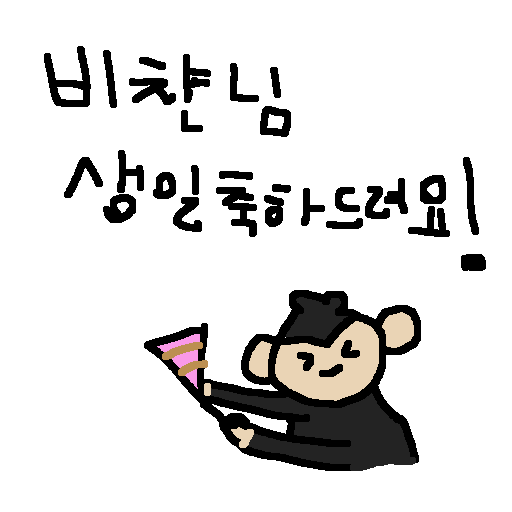 비챤님
생일축하드려요!